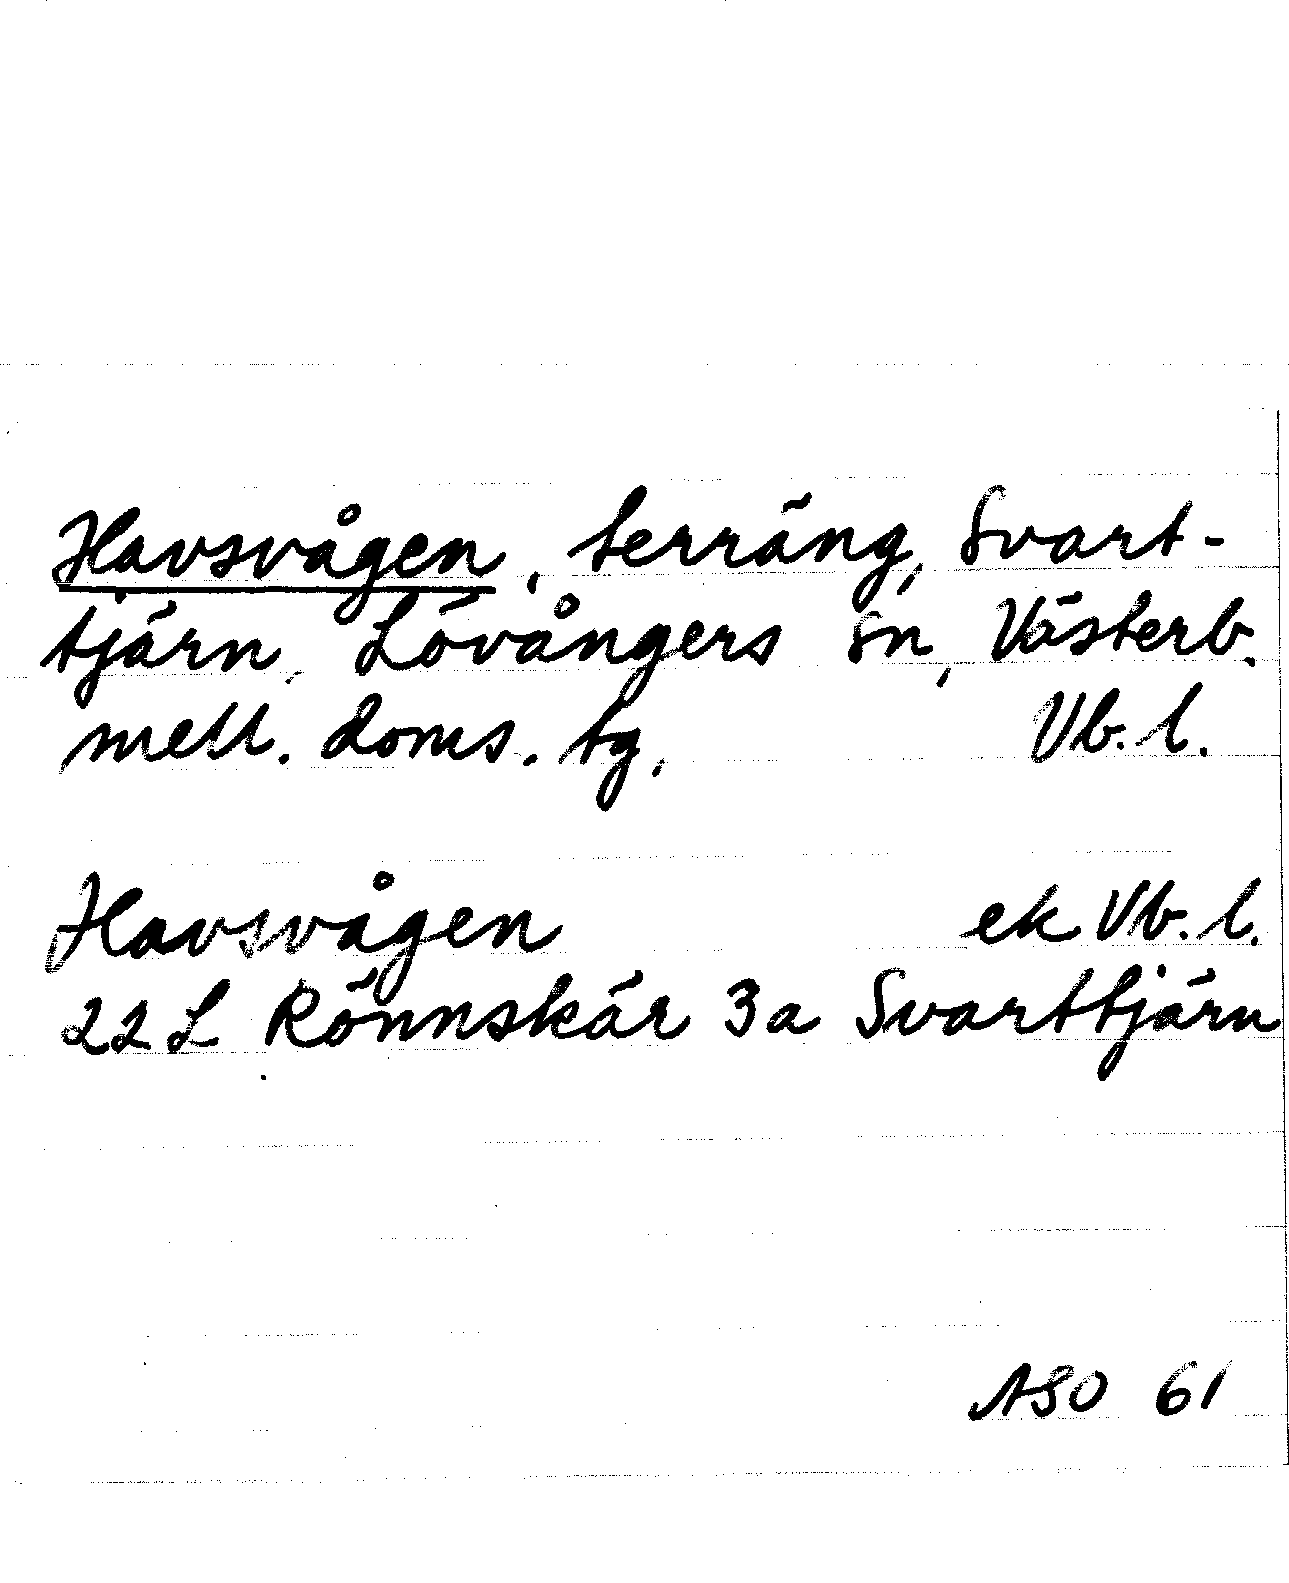 Havsvågen, terräng, Svart-
tjärn, Lövångers sn, Västerb.
mell. doms. tg, Vb. l.
Havsvågen ek Vb. l.
22 L Rönnskär 3a Svarttjärn
ASO 61